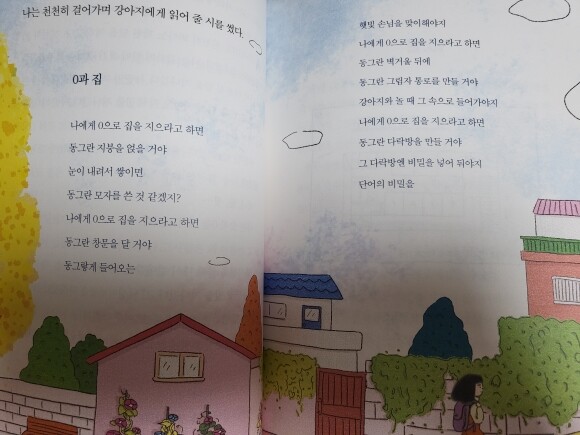 나는 천천히 걸어가며 강아지에게 읽어 줄 시를 썼다.
0과 집
나에게 0으로 집을 지으라고 하면
동그란 지붕을 얹을 거야
눈이 내려서 쌓이면
동그란 모자를 쓴 것 같겠지?
나에게 0으로 집을 지으라고 하면
동그란 창문을 달 거야
동그랗게 들어오는
햇빛 손님을 맞이해야지
나에게 0으로 집을 지으라고 하면
동그란 벽거울 뒤에
동그란 그림자 통로를 만들 거야
강아지와 놀 때 그 속으로 들어가야지
나에게 0으로 집을 지으라고 하면
동그란 다락방을 만들 거야
그 다락방엔 비밀을 넣어 둬야지
단어의 비밀을